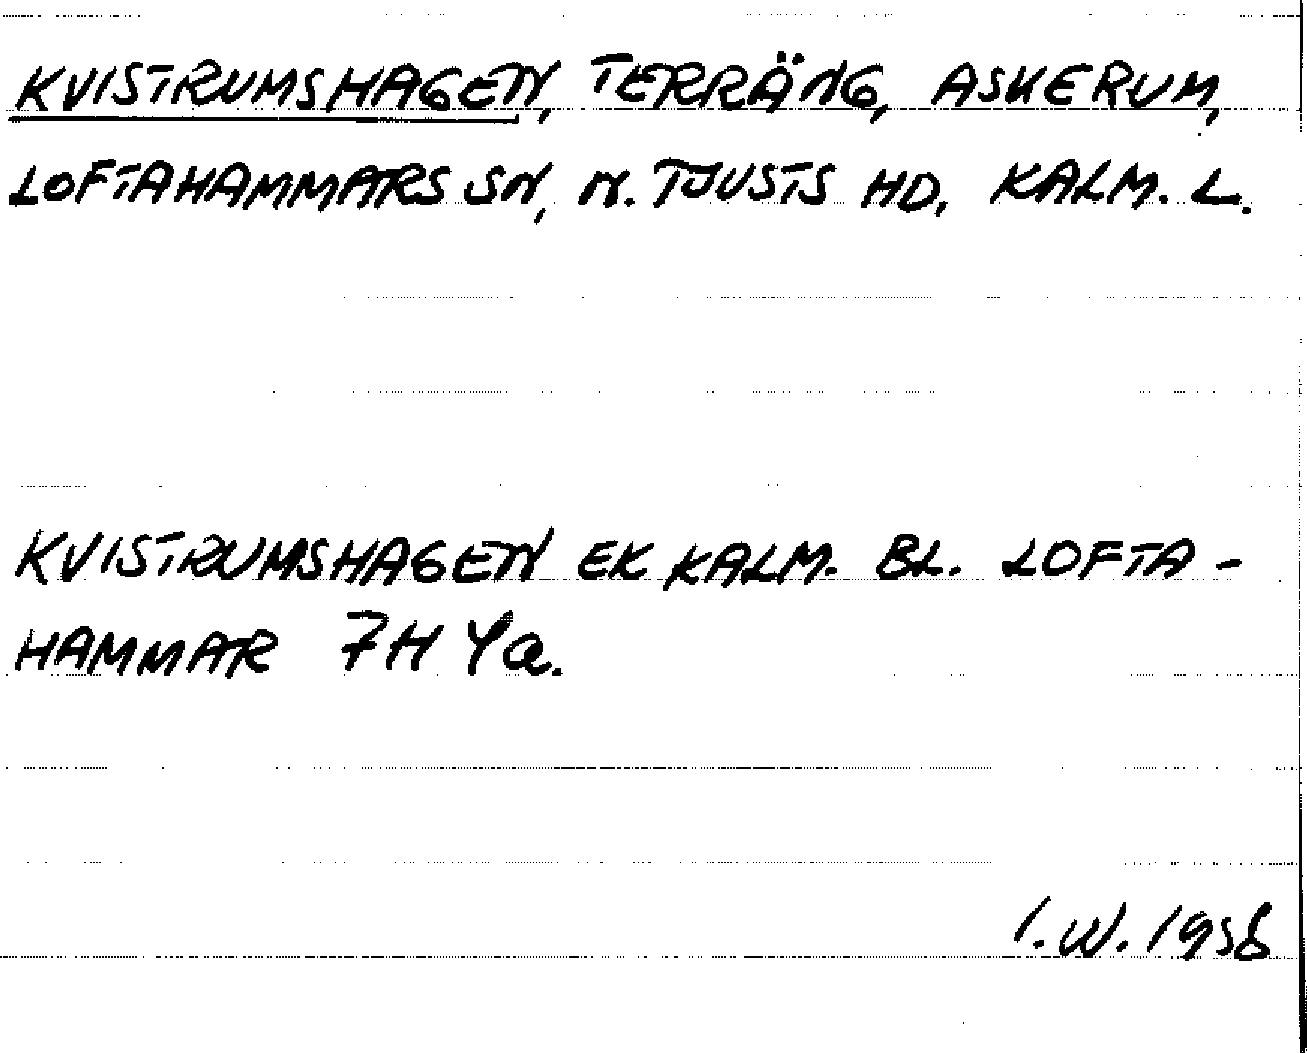 KVISTRUMSHAGEN, TERRÄNG, ASKERUM,
LOFTAHAMMARS SN, N. TJUSTS HD, KALM. L.
KVISTRUMSHAGEN EK KALM. BL. LOFTA-
HAMMAR 7H 4a.
I.W. 1958